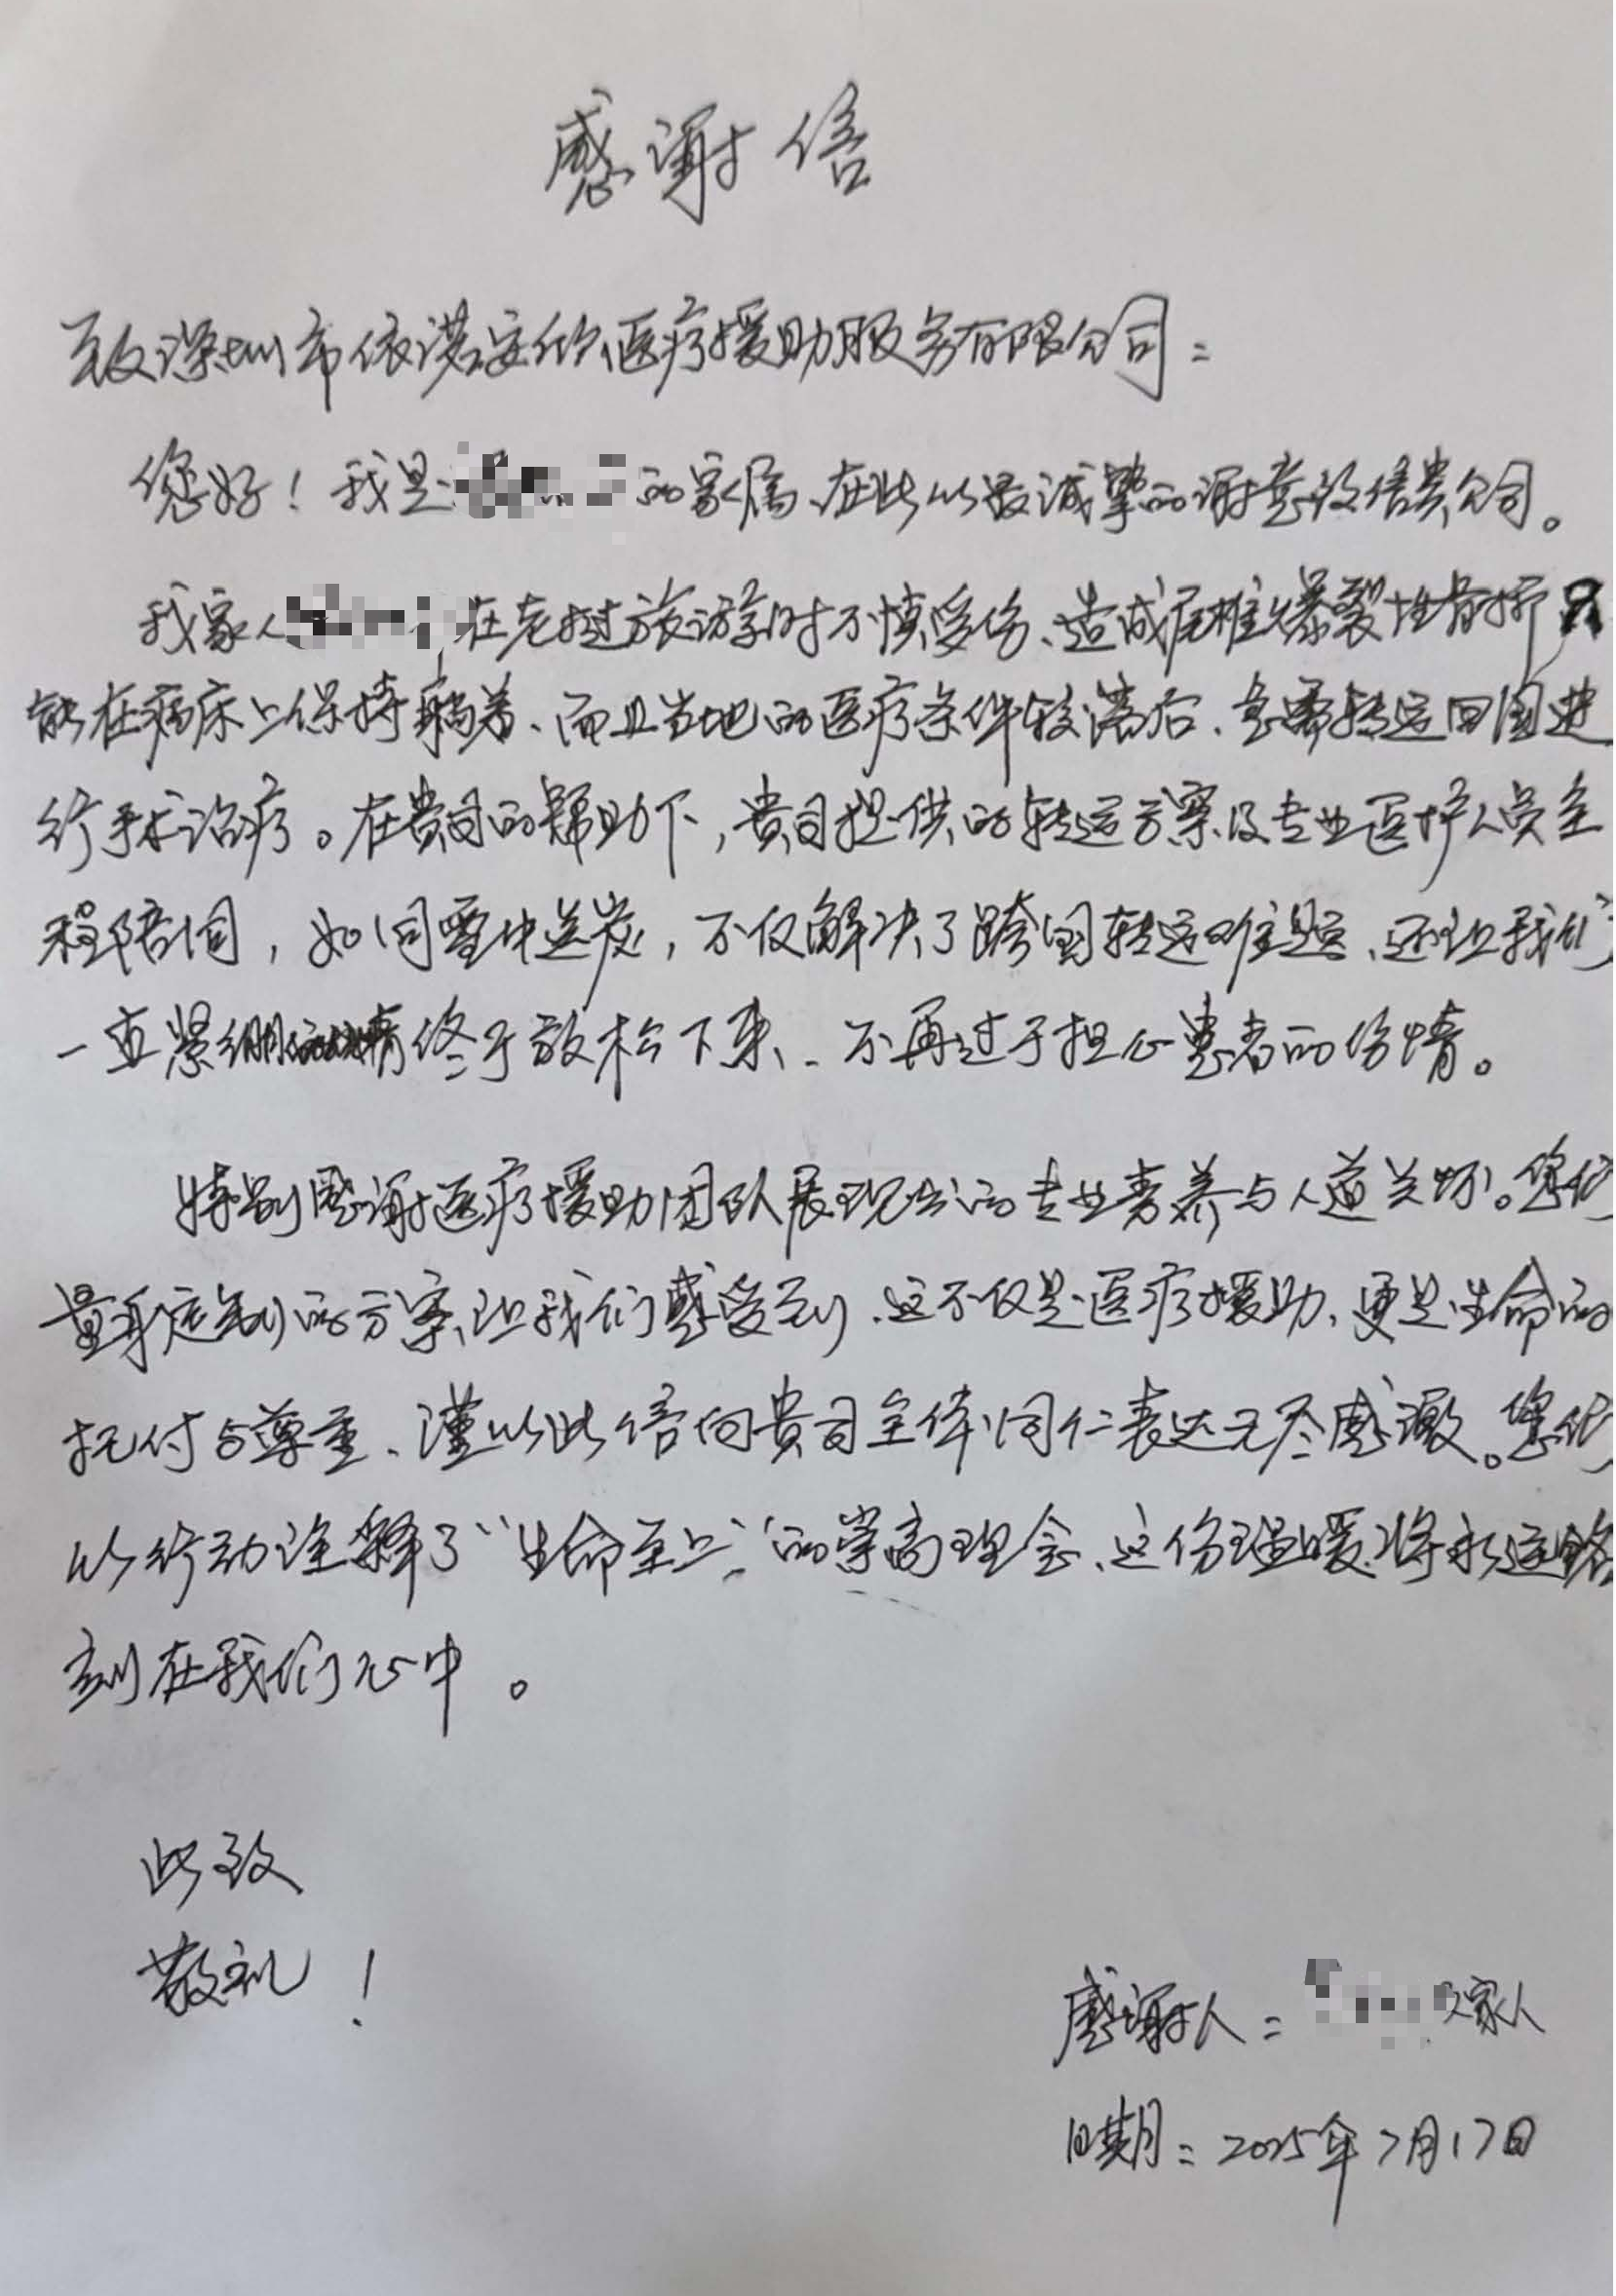 感谢信
致深圳市依诺安欣医疗援助服务有限公司：
您好！我是 的家属、在此以最诚挚的谢意致信贵公司。
我家人 在老挝旅游时不慎受伤、造成尾椎爆裂性骨折
能在病床上保持躺着、而且当地的医疗条件较落后、急需转运回国进
行手术治疗。在贵司的帮助下，贵司提供的转运方案及专业医护人员全
程陪同，如同雪中送炭，不仅解决了跨国转运难题、还让我们
一直紧绷 终于放松下来、不再过于担心患者的伤情。
特别感谢医疗援助团队展现出的专业素养与人道关怀。您们
量身定制的方案、让我们感受到、这不仅是医疗援助、更是生命的
托付与尊重、谨以此信向贵司全体同仁表达无尽感激。您们
以行动诠释了“生命至上”的崇高理念、这份温暖将永远铭
刻在我们心中。
此致
敬礼！
感谢人： 家人
日期：2025年7月17日